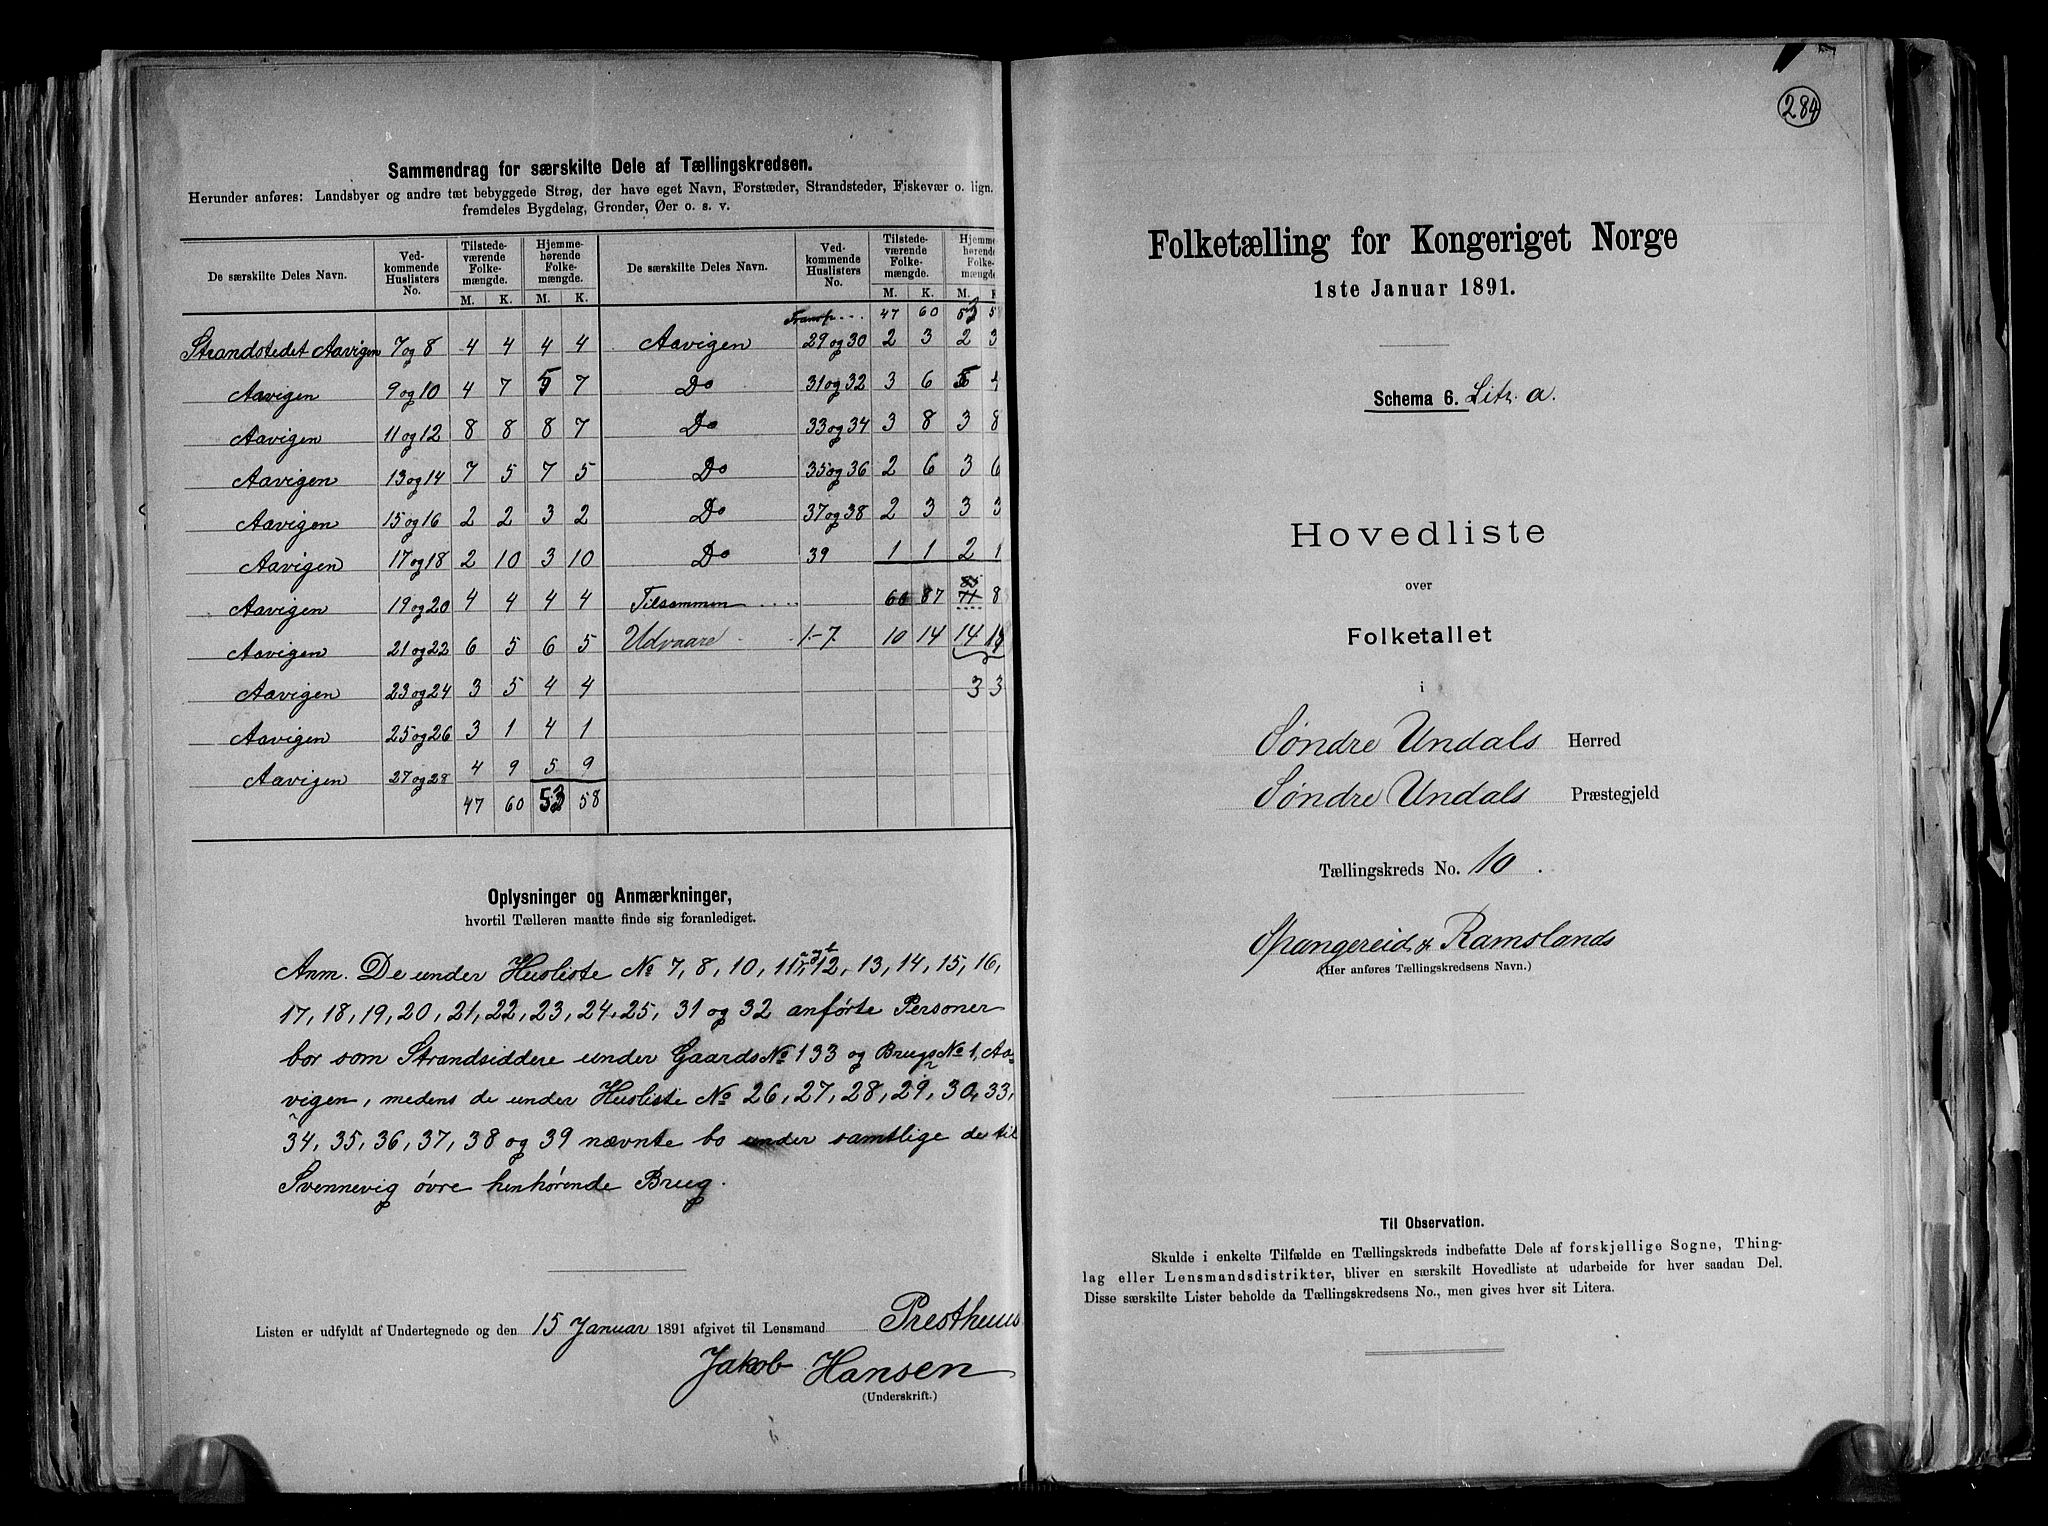 Sammendrag for særskilte Dele af Tællingskredsen.
Herunder anføres: Landsbyer og andre tæt bebyggede Strøg, der have eget Navn, Forstæder, Strandsteder, Fiskevær o. lign.
fremdeles Bygdelag, Grender, Øer o. s. v.
De særskilte Deles Navn. Vedkommende Huslisters No. Tilstedeværende Folkemængde. M. K. Hjemmehørende Folkemængde. M. K. De særskilte Deles Navn. Vedkommende Huslisters No. Tilstedeværende Folkemængde. M. K. Hjemmehørende Folkemængde. M. K.
Transp... 47 60 53 58
Strandstedet Aavigen 7 og 8 4 4 4 4 Aavigen 29 og 30 2 3 2 3
Aavigen 9 og 10 4 7 5 7 Do 31 og 32 3 6 5 4
Aavigen 11 og 12 8 8 8 7 Do 33 og 34 3 8 3 8
Aavigen 13 og 14 7 5 7 5 Do 35 og 36 2 6 3 6
Aavigen 15 og 16 2 2 3 2 Do 37 og 38 2 3 3 3
Aavigen 17 og 18 2 10 3 10 Do 39 1 1 2 1
Aavigen 19 og 20 4 4 4 4 Tilsammen .... 60 87 71 8
Aavigen 21 og 22 6 5 6 5 Udvaare 1-7 10 14 14 18
Aavigen 23 og 24 3 5 4 4 3 3
Aavigen 25 og 26 3 1 4 1
Aavigen 27 og 28 4 9 5 9
47 60 53 58
Oplysninger og Anmærkninger,
hvortil Tælleren maatte finde sig foranlediget.
Anm. De under Husliste No 7, 8, 10, 11, 12, 13, 14, 15, 16,
17, 18, 19, 20, 21, 22, 23, 24, 25, 31 og 32 anførte Personer
bor som Strandsiddere under Gaards No 133 og Brugs No 1, Aa-
vigen, medens de under Husliste No 26, 27, 28, 29, 30, 33,
34, 35, 36, 37, 38 og 39 nævnte bo under samtlige de til
Svennevig øvre henhørende Brug.
Listen er udfyldt af Undertegnede og den 15 Januar 1891 afgivet til Lensmand Presthuus
Jakob Hansen
(Underskrift.)
284
Folketælling for Kongeriget Norge
1ste Januar 1891.
Schema 6. Litr. a.
Hovedliste
over
Folketallet
i
Søndre Undals Herred
Søndre Undals Præstegjeld
Tællingskreds No. 10.
Spangereid & Ramslands
(Her anføres Tællingskredsens Navn.)
Til Observation.
Skulde i enkelte Tilfælde en Tællingskreds indbefatte Dele af forskjellige Sogne, Thing-
lag eller Lensmandsdistrikter, bliver en særskilt Hovedliste at udarbeide for hver saadan Del.
Disse særskilte Lister beholde da Tællingskredsens No., men gives hver sit Litera.